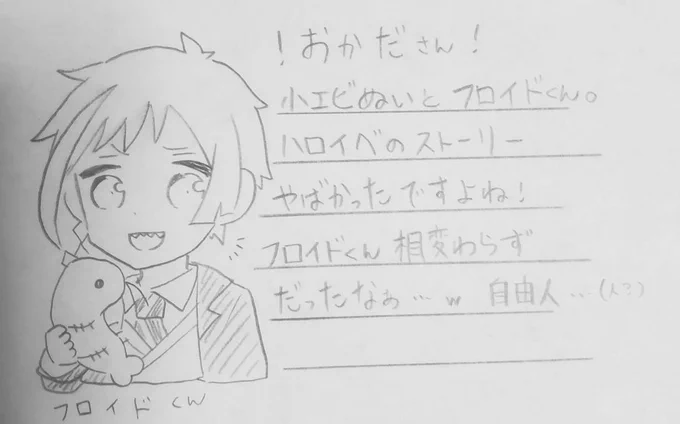 ！おかださん！
小エビぬいと フロイドくん。
ハロイベのストーリー
やばかったですよね！
フロイドくん 相変わらず
だったなぁ…w 自由人…(人？)
フロイドくん